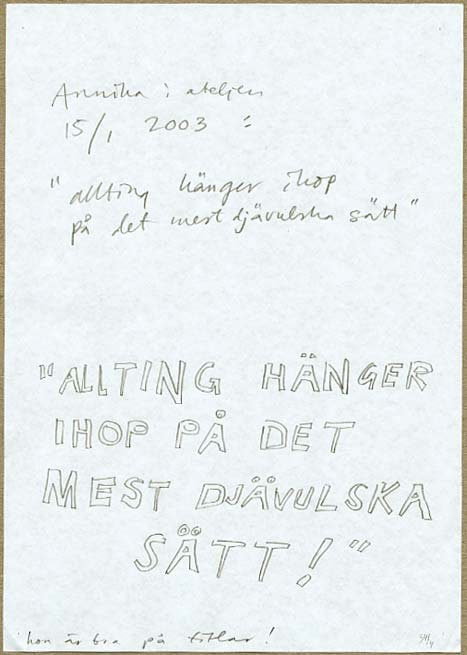 Annika i ateljen
15/1 2003 :
"allting hänger ihop
på det mest djävulska sätt"
"ALLTING HÄNGER
IHOP PÅ DET
MEST DJÄVULSKA
SÄTT!"
hon är bra på titlar!